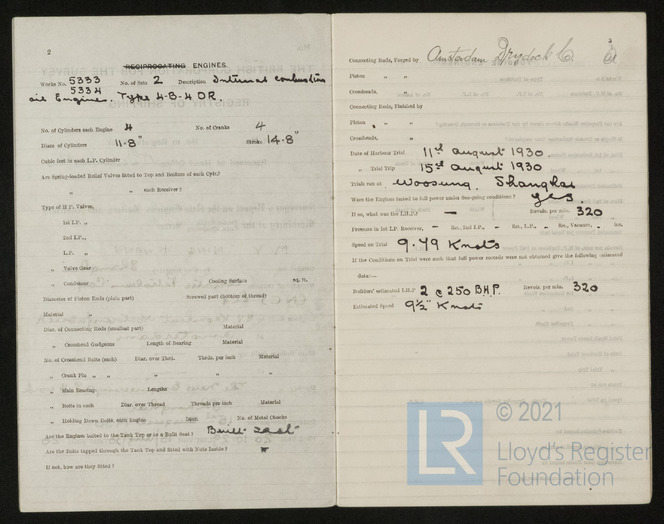 2
RECIPROCATING ENGINES.
Works No. 5333 No. of Sets 2 Description Internal combustion
5334
oil Engines. Type 4-B-4 OR.
No. of Cylinders each Engine 4 No. of Cranks 4
Diars. of Cylinders 11·8" Stroke 14·8"
Cubic feet in each L.P. Cylinder
Are Spring-loaded Relief Valves fitted to Top and Bottom of each Cylr.?
„ „ each Receiver?
Type of H.P. Valves,
1st I.P. „
2nd I.P. „
L.P. „
„ Valve Gear
„ Condenser Cooling Surface sq. ft.
Diameter of Piston Rods (plain part) Screwed part (bottom of thread)
Material „
Diar. of Connecting Rods (smallest part) Material
„ Crosshead Gudgeons Length of Bearing Material
No. of Crosshead Bolts (each) Diar. over Thrd. Thrds. per inch Material
„ Crank Pin „ „ „ „ „
„ Main Bearing Lengths
„ Bolts in each Diar. over Thread Threads per inch Material
„ Holding Down Bolts, each Engine Diar. No. of Metal Chocks
Are the Engines bolted to the Tank Top or to a Built Seat? Built seat
Are the Bolts tapped through the Tank Top and fitted with Nuts Inside?
If not, how are they fitted?
3
Connecting Rods, Forged by Amsterdam Drydock Co.
Piston „ „
Crossheads, „
Connecting Rods, Finished by
Piston „ „
Crossheads, „
Date of Harbour Trial 11th August 1930
„ Trial Trip 15th August 1930
Trials run at Woosung, Shanghai
Were the Engines tested to full power under Sea-going conditions? yes.
If so, what was the I.H.P.? — Revols. per min. 320
Pressure in 1st I.P. Receiver, — lbs., 2nd I.P., — lbs., L.P., — lbs., Vacuum, — ins.
Speed on Trial 9·79 Knots
If the Conditions on Trial were such that full power records were not obtained give the following estimated
data:—
Builders' estimated I.H.P. 2 @ 250 B.H.P. Revols. per min. 320
Estimated Speed 9½" Knots
LR
© 2021
Lloyd's Register
Foundation